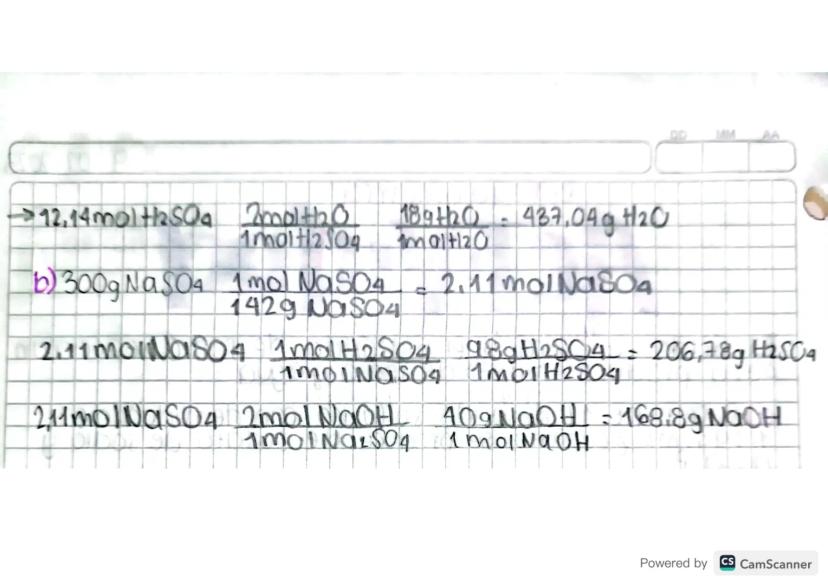 DD MM AA
→12,14mol H2SO4 2mol H2O/1mol H2SO4 18g H2O/1mol H2O = 437,04g H2O
b) 300g NaSO4 1mol NaSO4/142g NaSO4 = 2,11mol NaSO4
2,11mol NaSO4 1mol H2SO4/1mol NaSO4 98g H2SO4/1mol H2SO4 = 206,78g H2SO4
2,11mol NaSO4 2mol NaOH/1mol Na2SO4 40g NaOH/1mol NaOH = 168,8g NaOH
Powered by CS CamScanner